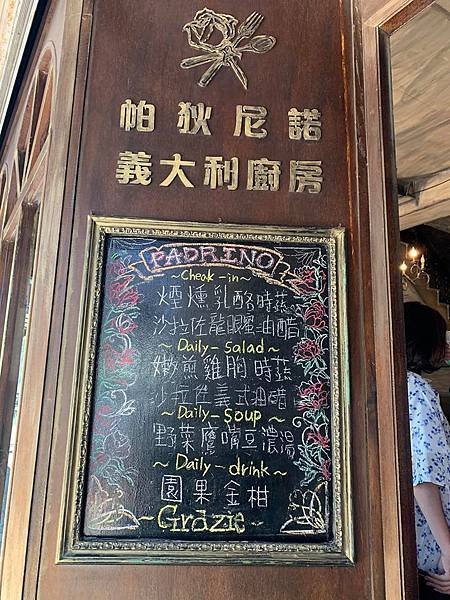 帕狄尼諾
義大利廚房
PADRINO
~Cheak-in~
煙燻乳酪時蔬
沙拉佐龍眼蜜油醋
~Daily-salad~
嫩煎雞胸時蔬
沙拉佐義式油醋
~Daily-soup~
野菜鷹嘴豆濃湯
~Daily-drink~
園果金柑
~Grazie~